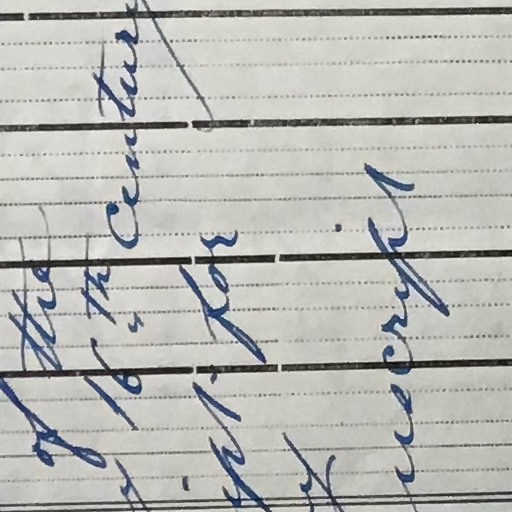 of the
16th century
ipt for
y
uscript